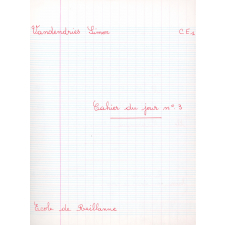 Vandendries Simon C.E.2
Cahier du jour n° 3
Ecole de Reillanne